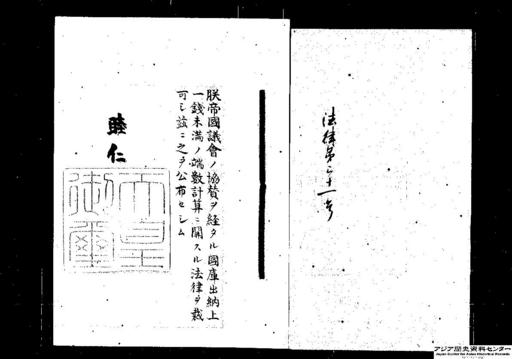 法律第三十一号
朕帝國議會ノ協賛ヲ経タル國庫出納上
一錢未満ノ端数計算ニ関スル法律ヲ裁
可シ茲ニ之ヲ公布セシム
睦仁
天皇
御璽
アジア歴史資料センター
Japan Center for Asian Historical Records